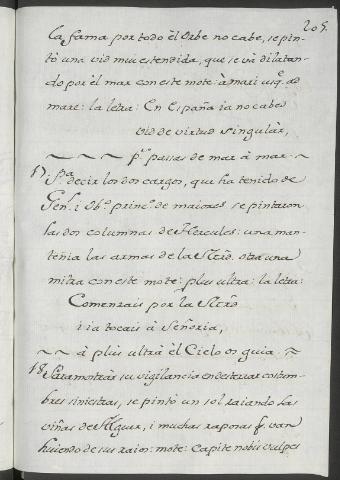 205.
la fama por todo èl Orbe no cabe, se pin-
tò una vid mui estendida, que se và dilatan-
do por èl mar con este mote: à mari usq. ad
mare: la letra: En España ia no cabe
vid de virtud singulàr,
pr. passar de mar à mar
17. Pa. decir los dos cargos, que ha tenido de
Genl. i Obpo. princl. de maiores se pintaron
las dos columnas de Hercules: una man-
tenia las armas de la Mrd. otra una
mitra con este mote: plus ultra: la letra:
Comenzais por la Mrd
i ia tocais à Señoria,
à plus ultrà èl Cielo os guia.
18. Para mostràr su vigilancia en desterrar costum-
bres siniestras, se pintò un sol raiando las
viñas de Aguar, i muchas raposas q. van
huiendo de sus raios: mote: Capite nobis vulpes